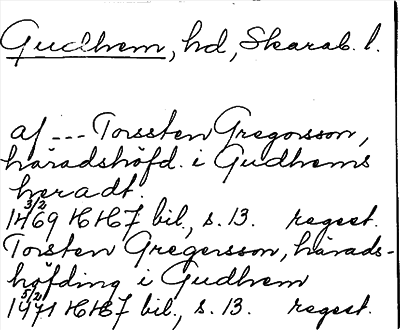 Gudhem, hd, Skarab. l.
af --- Torssten Gregorsson,
häradshöfd. i Gudhems
heradt.
3/2
1469 HH7 bil., s. 13. regest.
Torsten Gregersson, härads-
höfding i Gudhem
5/2
1471 HH7 bil., s. 13. regest.